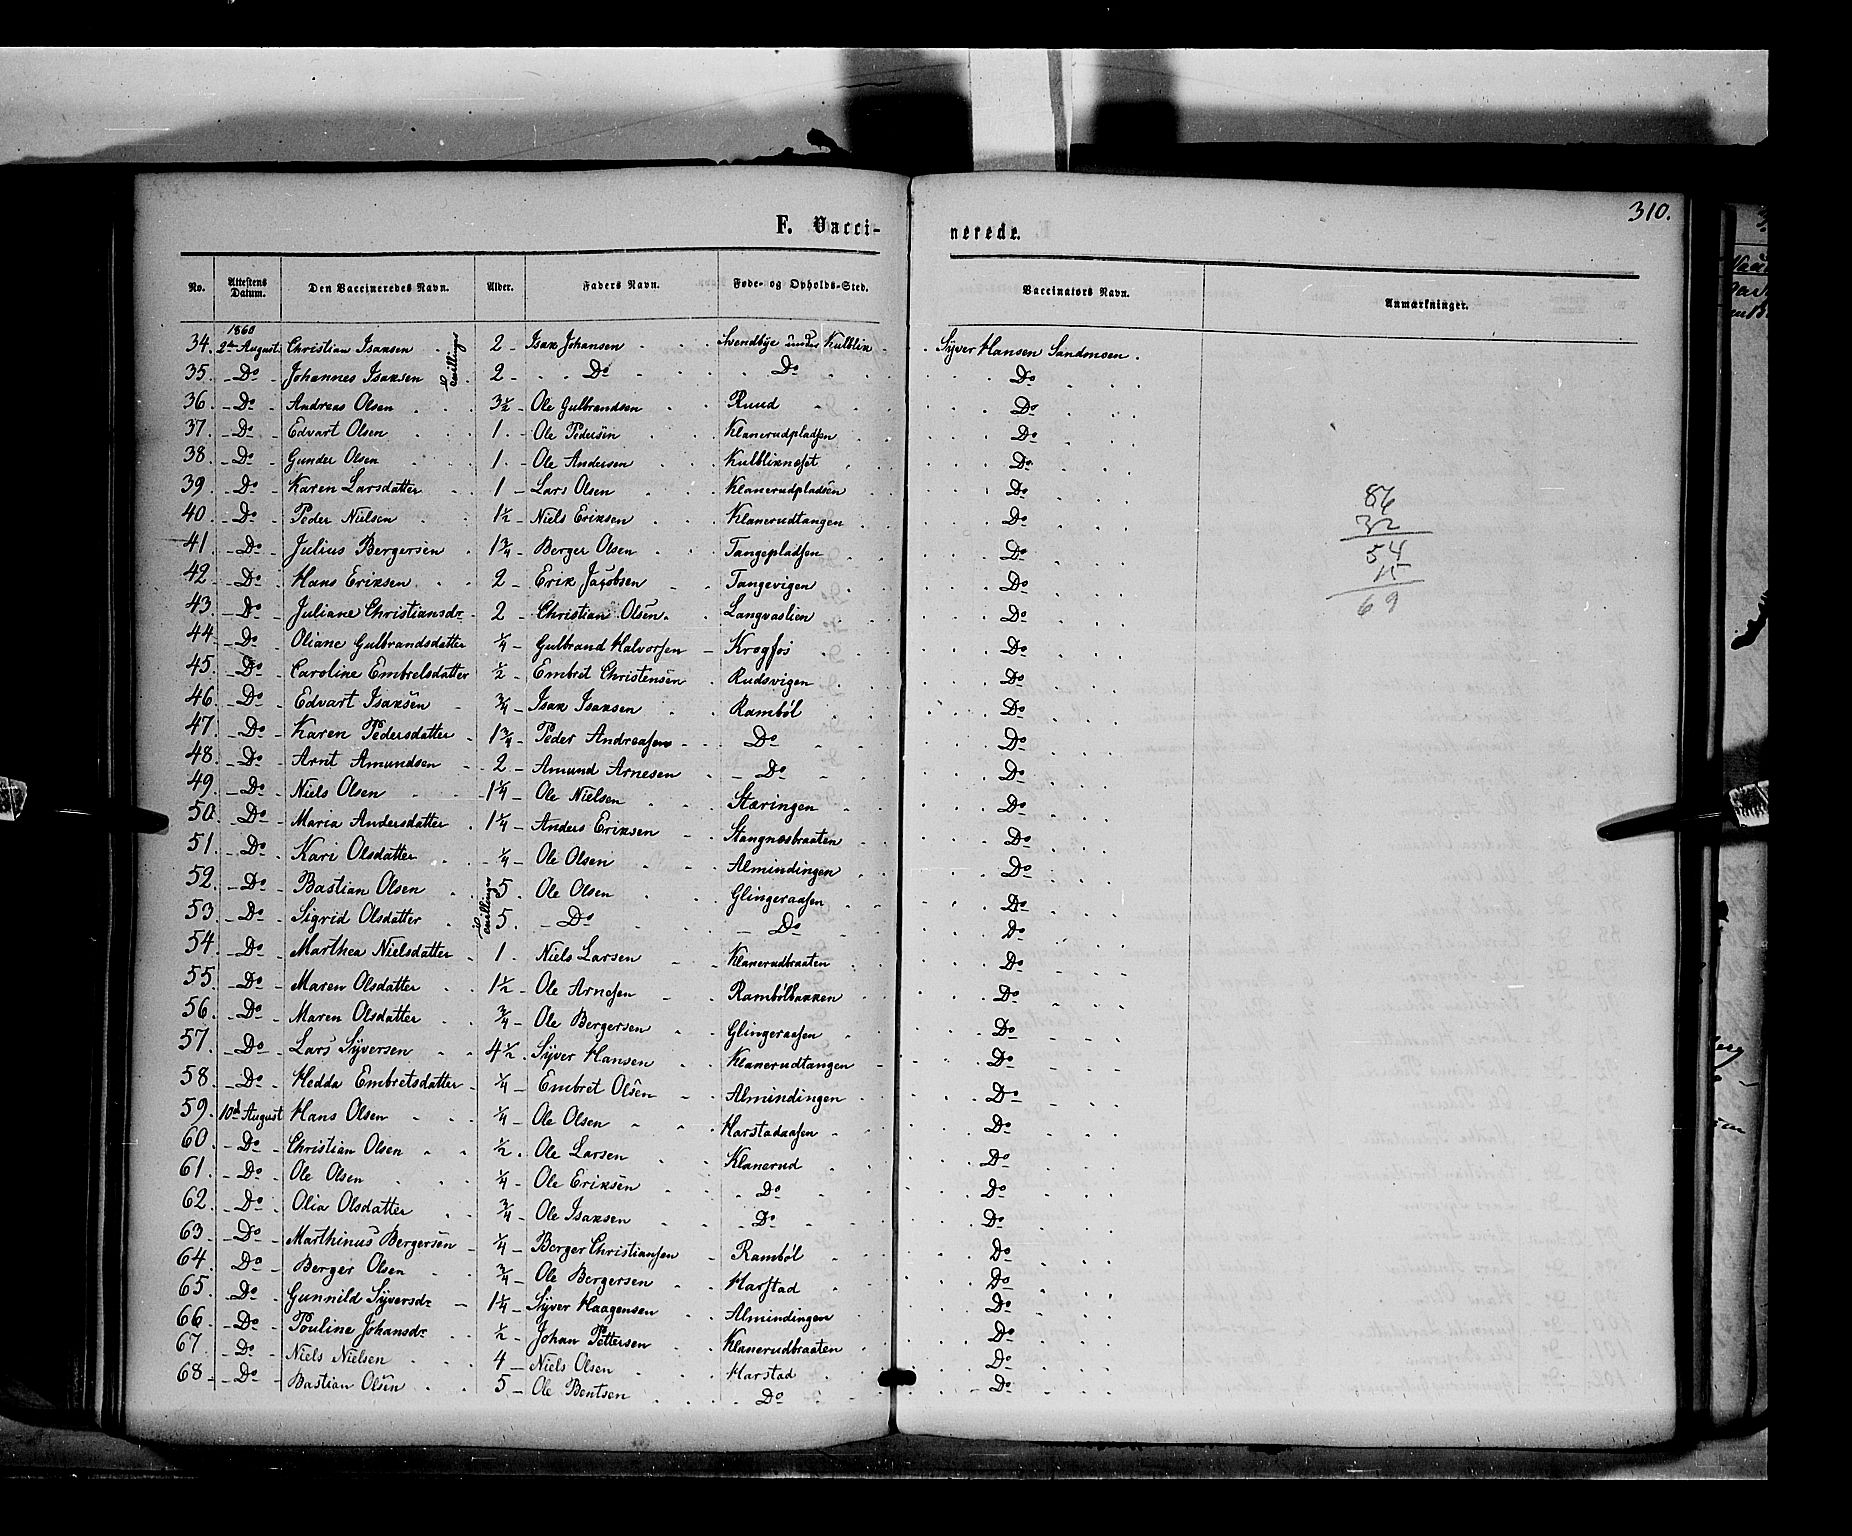 310.
F. Vacci- nerede.
No. Attestens Datum. Den Vaccineredes Navn. Alder. Faders Navn. Føde- og Opholds-Sted. Vaccinators Navn. Anmærkninger.
1860
34. 2den August Christian Isaksen 2 Isak Johansen Svendbye under Kulblik Syver Hansen Sandmoen.
Tvillinger
35. Do Johannes Isaksen 2 Do Do Do
36. Do Andreas Olsen 3½ Ole Gulbrandsen Ruud Do
37. Do Edvart Olsen 1 Ole Pedersen Klanerudpladsen Do
38. Do Gunder Olsen 1 Ole Andersen Kulbliknæset Do
39. Do Karen Larsdatter 1 Lars Olsen Klanerudpladsen Do
40. Do Peder Nielsen 1½ Niels Eriksen Klanerudtangen Do
41. Do Julius Bergersen 1¾ Berger Olsen Tangepladsen Do
42. Do Hans Eriksen 2 Erik Jacobsen Tangevigen Do
43. Do Juliane Christiansdr 2 Christian Olsen Langvaslien Do
44. Do Oliane Gulbrandsdatter ¼ Gulbrand Halvorsen Krogfos Do
45. Do Caroline Embretsdatter ½ Embret Christensen Rudsvigen Do
46. Do Edvart Isaksen ¾ Isak Isaksen Rambøl Do
47. Do Karen Pedersdatter 1¾ Peder Andreasen Do Do
48. Do Arnt Amundsen 2 Amund Arnesen Do Do
49. Do Niels Olsen 1¼ Ole Nielsen Støringen Do
50. Do Maria Andersdatter 1¼ Anders Eriksen Stangnæsbraaten Do
51. Do Kari Olsdatter ¼ Ole Olsen Almindingen Do
52. Do Bastian Olsen 5 Ole Olsen Glingeraasen Do
Tvillinger
53. Do Sigrid Olsdatter 5 Do Do Do
54. Do Marthea Nielsdatter 1 Niels Larsen Klanerudbraaten Do
55. Do Maren Olsdatter 1½ Ole Arnesen Rambølbakken Do
56. Do Maren Olsdatter ¾ Ole Bergersen Glingeraasen Do
57. Do Lars Syversen 4½ Syver Hansen Klanerudtangen Do
58. Do Hedda Embretsdatter ¼ Embret Olsen Almindingen Do
59. 10d August Hans Olsen ¼ Ole Olsen Harstadaasen Do
60. Do Christian Olsen ½ Ole Larsen Klanerud Do
61. Do Ole Olsen ¼ Ole Eriksen Do Do
62. Do Olia Olsdatter ¾ Ole Isaksen Do Do
63. Do Marthinus Bergersen ¼ Berger Christiansen Rambøl Do
64. Do Berger Olsen ¾ Ole Bergersen Harstad Do
65. Do Gunnild Syversdr 1¼ Syver Haagensen Almindingen Do
66. Do Pouline Johansdr ½ Johan Pettersen Klanerudbraaten Do
67. Do Niels Nielsen 4 Niels Olsen Harstad Do
68. Do Bastian Olsen 5 Ole Bentsen Do Do
86
32
54
15
69